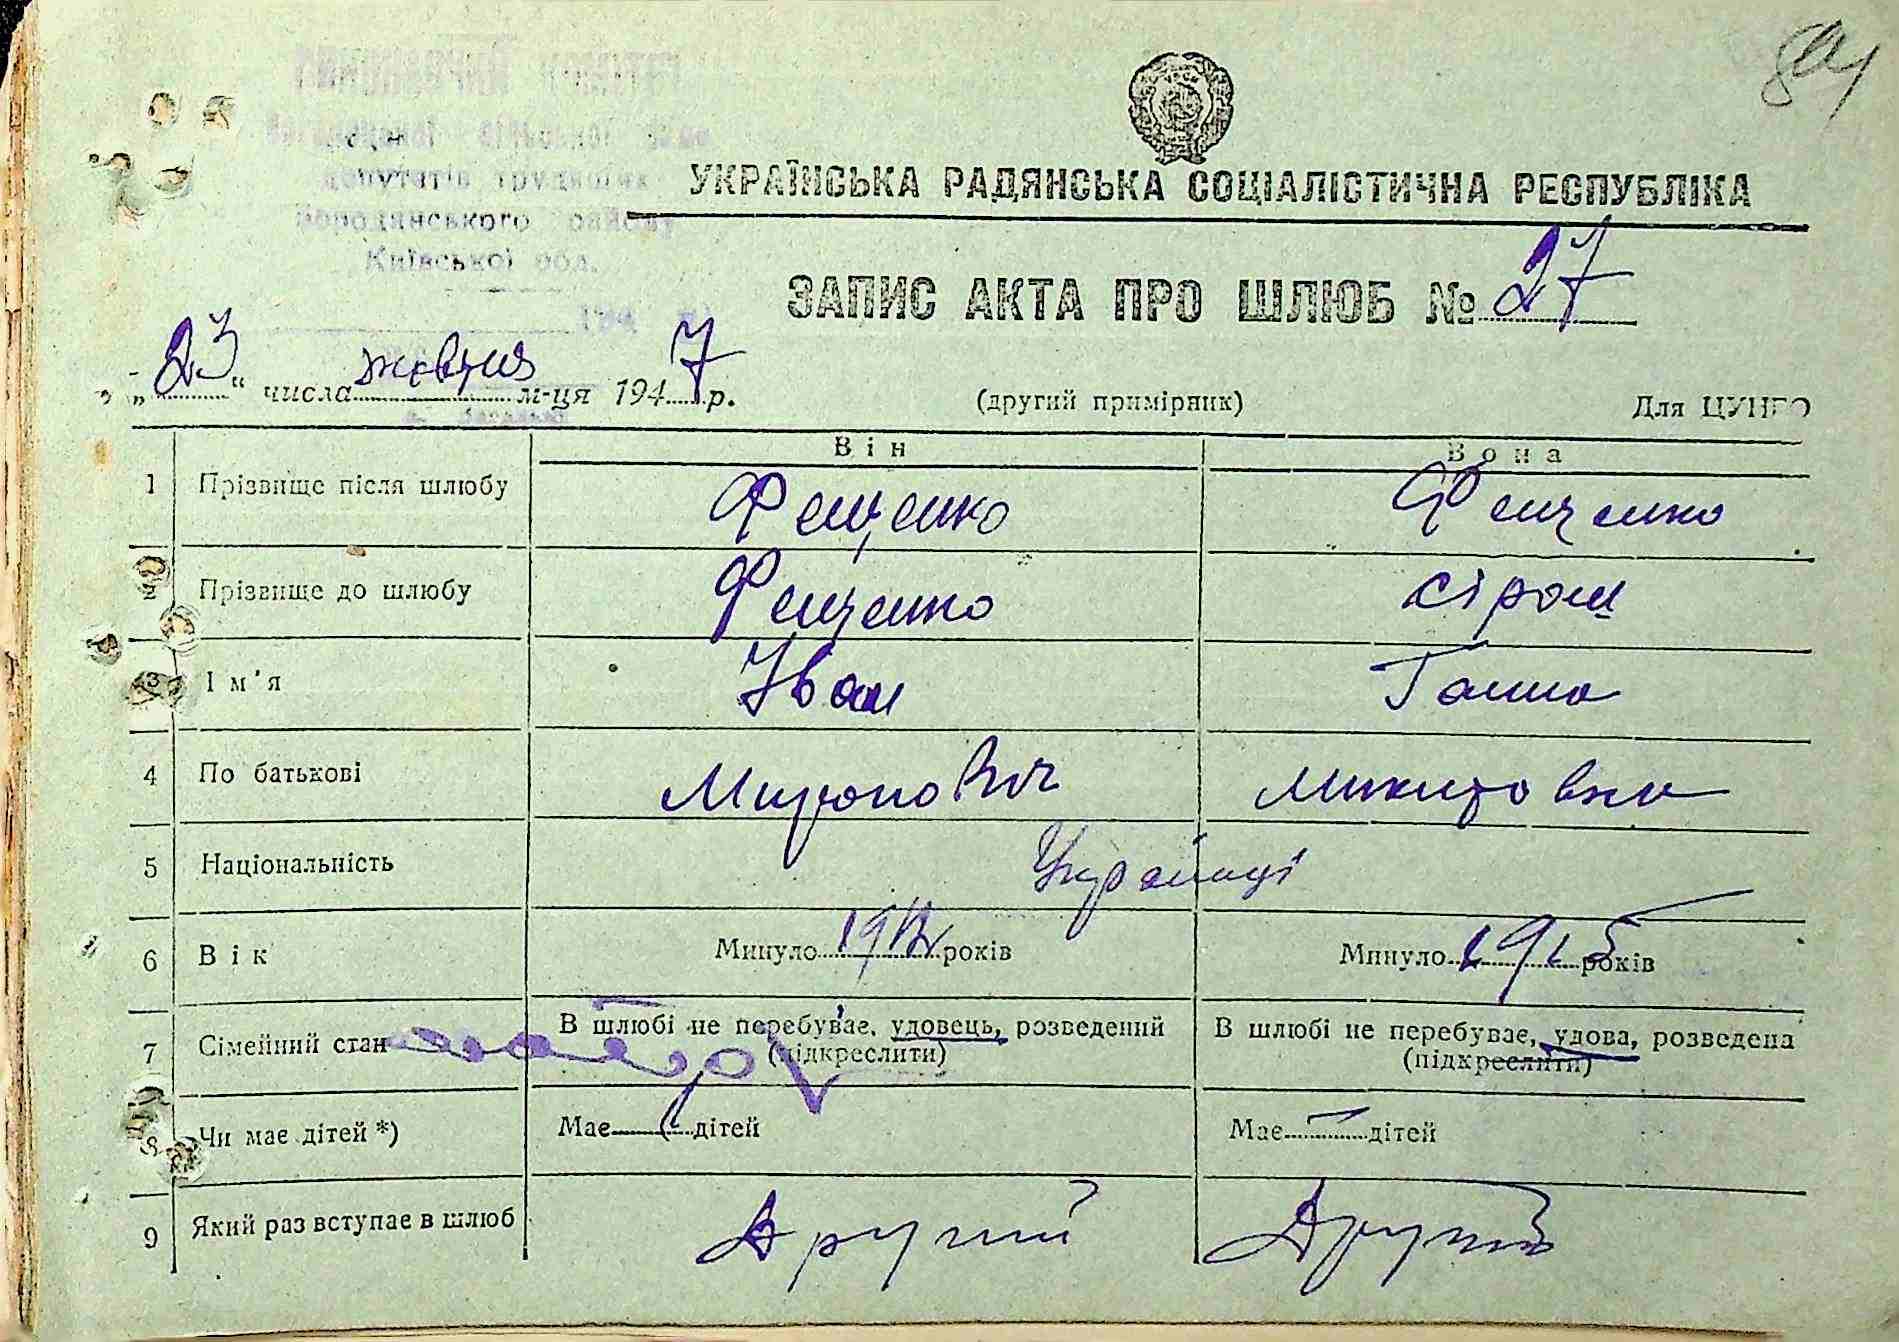 84
депутатів трудящих
Бородянського району
Київської обл.
УКРАЇНСЬКА РАДЯНСЬКА СОЦІАЛІСТИЧНА РЕСПУБЛІКА
ЗАПИС АКТА ПРО ШЛЮБ № 27
„23“ числа жовтня м-ця 1947 р.
(другий примірник)
Для ЦУНГО
Він Вона
1 Прізвище після шлюбу Фещенко Фещенко
2 Прізвище до шлюбу Фещенко Сірош
3 Ім'я Іван Ганна
4 По батькові Миронович Микитовна
5 Національність Українці
6 Вік Минуло років Минуло 1915 років
7 Сімейний стан В шлюбі не перебуває, удовець, розведений В шлюбі не перебуває, удова, розведена
(підкреслити) (підкреслити)
8 Чи має дітей *) Має дітей Має — дітей
9 Який раз вступає в шлюб Другий Другий